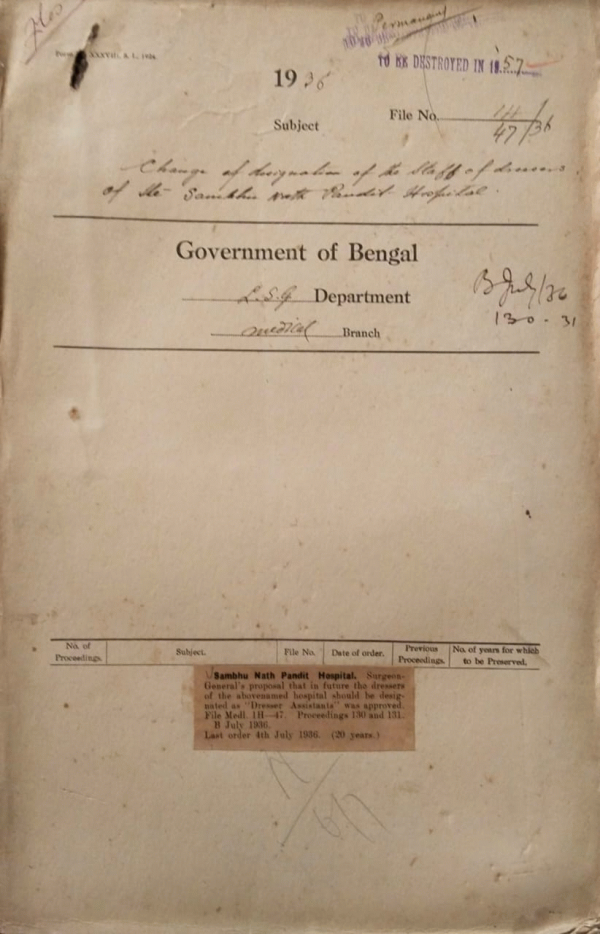 Permanent
TO BE DESTROYED IN 1957
1936
Subject
File No. 1H/47/36
Change of designation of the Staff of dressers
of the Sambhu Nath Pandit Hospital.
Government of Bengal
L.S.G Department
Medical Branch
B July/36
130-31
No. of Proceedings.
Subject.
File No.
Date of order.
Previous Proceedings.
No. of years for which to be Preserved.
Sambhu Nath Pandit Hospital. Surgeon-
General's proposal that in future the dressers
of the abovenamed hospital should be desig-
nated as "Dresser Assistants" was approved.
File Medl. 1H—47. Proceedings 130 and 131.
B July 1936.
Last order 4th July 1936. (20 years.)